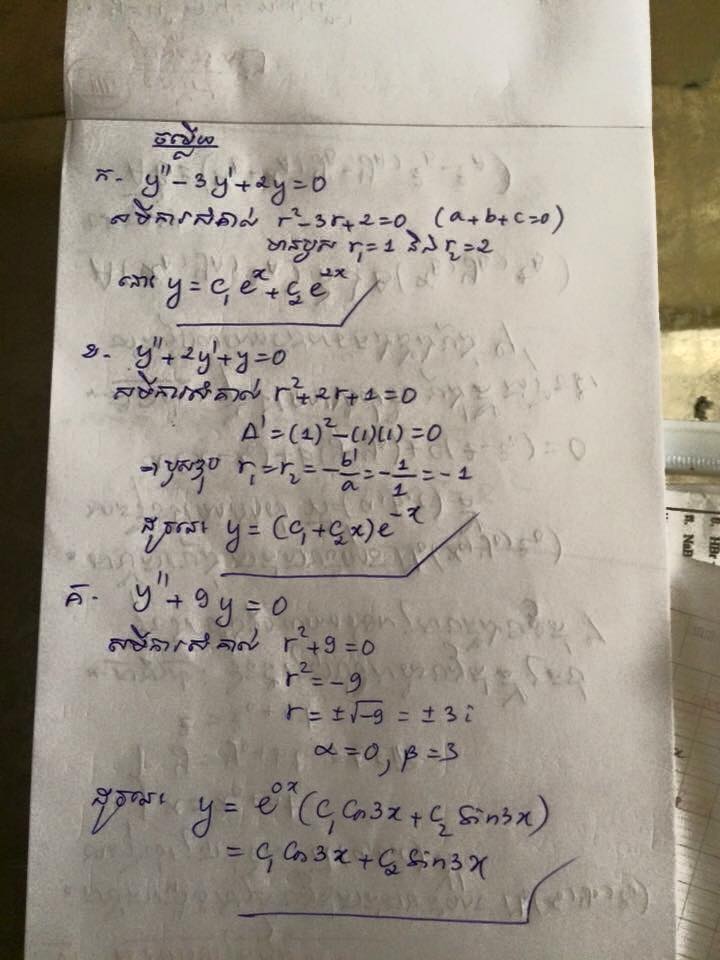 ចម្លើយ
ក- y'' - 3y' + 2y = 0
សមីការសំគាល់ r² - 3r + 2 = 0 (a + b + c = 0)
មានឫស r₁ = 1 និង r₂ = 2
នោះ y = c₁eˣ + c₂e²ˣ
ខ- y'' + 2y' + y = 0
សមីការសំគាល់ r² + 2r + 1 = 0
Δ' = (1)² - (1)(1) = 0
⇒ ឫសឌុប r₁ = r₂ = -b'/a = -1/1 = -1
ដូចនេះ y = (c₁ + c₂x)e⁻ˣ
គ- y'' + 9y = 0
សមីការសំគាល់ r² + 9 = 0
r² = -9
r = ±√-9 = ±3i
α = 0, β = 3
ដូចនេះ y = e⁰ˣ(c₁ cos3x + c₂ sin3x)
= c₁ cos3x + c₂ sin3x
HBr
R. NaB